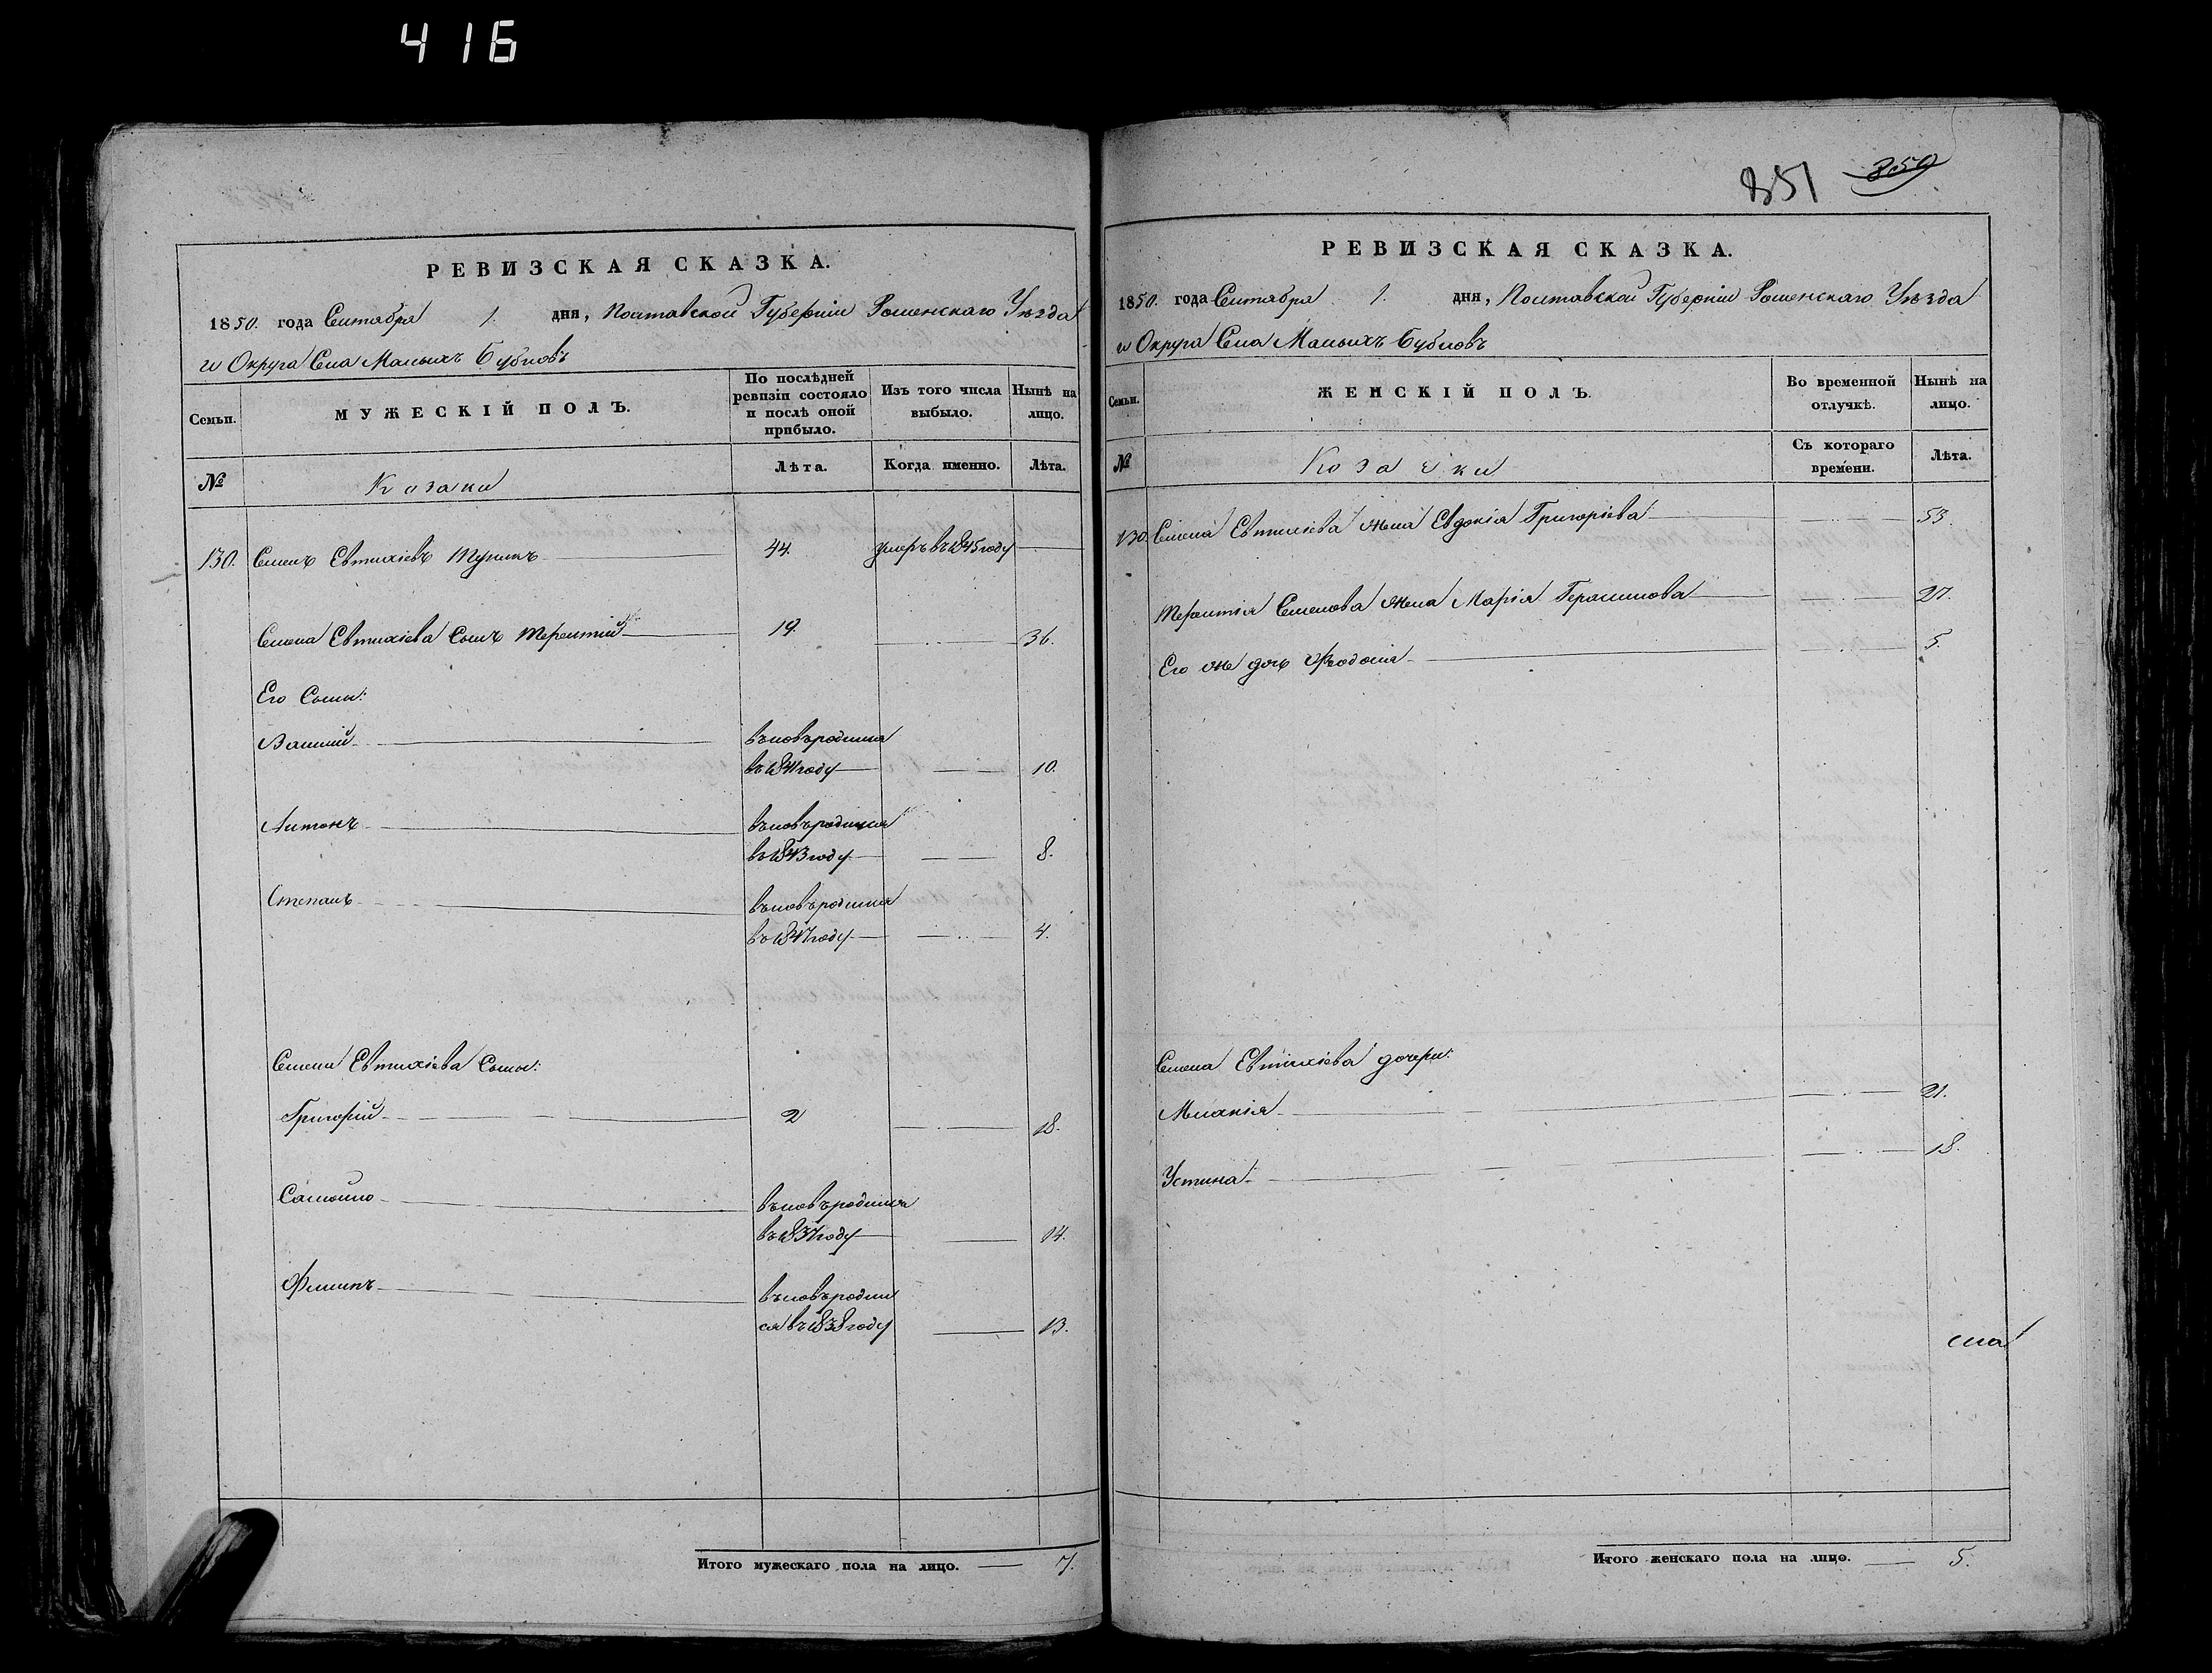 416
РЕВИЗСКАЯ СКАЗКА.
1850. года Сентября 1. дня, Полтавской Губерніи Роменскаго Уѣзда
и Округа Села Малыхъ Бубновъ
Семьи.
МУЖЕСКІЙ ПОЛЪ.
По послѣдней ревизіи состояло и послѣ оной прибыло.
Изъ того числа выбыло.
Нынѣ на лицо.
№
Козаки
Лѣта.
Когда именно.
Лѣта.
130. Семенъ Евтихіевъ 44. умеръ въ 1845 году
Семена Евтихіева Сынъ Терентій 19. 36.
Его Сыны:
Василій вьновьродился
въ 1841 году 10.
Антонъ вьновьродился
въ 1843 году 8.
Степанъ вьновьродился
въ 1847 году 4.
Семена Евтихіева Сыны:
Григорій 2 18.
Самойло вьновьродился
въ 1837 году 14.
Филипъ вьновьродил
ся въ 1838 году 13.
Итого мужескаго пола на лицо. 7.
851 850
РЕВИЗСКАЯ СКАЗКА.
1850. года Сентября 1. дня, Полтавской Губерніи Роменскаго Уѣзда
и Округа Села Малыхъ Бубновъ
Семьи.
ЖЕНСКІЙ ПОЛЪ.
Во временной отлучкѣ.
Нынѣ на лицо.
№
Козачки
Съ котораго времени.
Лѣта.
130. Семена Евтихіева жена Евдокія Григоріева 53.
Терентія Семенова жена Марія Герасимова 27.
Его же дочь Феодосія 5.
Семена Евтихіева дочери:
Меланія 21.
Устина 18.
села
Итого женскаго пола на лицо. 5.